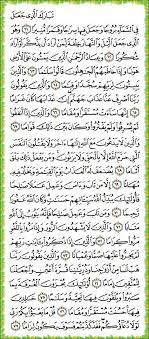 تَبَارَكَ الَّذِي جَعَلَ
فِي السَّمَاءِ بُرُوجًا وَجَعَلَ فِيهَا سِرَاجًا وَقَمَرًا مُّنِيرًا ٦١ وَهُوَ
الَّذِي جَعَلَ اللَّيْلَ وَالنَّهَارَ خِلْفَةً لِّمَنْ أَرَادَ أَن يَذَّكَّرَ أَوْ أَرَادَ
شُكُورًا ٦٢ وَعِبَادُ الرَّحْمَٰنِ الَّذِينَ يَمْشُونَ عَلَى الْأَرْضِ
هَوْنًا وَإِذَا خَاطَبَهُمُ الْجَاهِلُونَ قَالُوا سَلَامًا ٦٣ وَالَّذِينَ
يَبِيتُونَ لِرَبِّهِمْ سُجَّدًا وَقِيَامًا ٦٤ وَالَّذِينَ يَقُولُونَ رَبَّنَا
اصْرِفْ عَنَّا عَذَابَ جَهَنَّمَ إِنَّ عَذَابَهَا كَانَ غَرَامًا ٦٥
إِنَّهَا سَاءَتْ مُسْتَقَرًّا وَمُقَامًا ٦٦ وَالَّذِينَ إِذَا أَنفَقُوا
لَمْ يُسْرِفُوا وَلَمْ يَقْتُرُوا وَكَانَ بَيْنَ ذَٰلِكَ قَوَامًا ٦٧
وَالَّذِينَ لَا يَدْعُونَ مَعَ اللَّهِ إِلَٰهًا آخَرَ وَلَا يَقْتُلُونَ النَّفْسَ
الَّتِي حَرَّمَ اللَّهُ إِلَّا بِالْحَقِّ وَلَا يَزْنُونَ وَمَن يَفْعَلْ ذَٰلِكَ يَلْقَ
أَثَامًا ٦٨ يُضَاعَفْ لَهُ الْعَذَابُ يَوْمَ الْقِيَامَةِ وَيَخْلُدْ فِيهِ
مُهَانًا ٦٩ إِلَّا مَن تَابَ وَآمَنَ وَعَمِلَ عَمَلًا صَالِحًا
فَأُولَٰئِكَ يُبَدِّلُ اللَّهُ سَيِّئَاتِهِمْ حَسَنَاتٍ وَكَانَ اللَّهُ غَفُورًا
رَّحِيمًا ٧٠ وَمَن تَابَ وَعَمِلَ صَالِحًا فَإِنَّهُ يَتُوبُ إِلَى اللَّهِ
مَتَابًا ٧١ وَالَّذِينَ لَا يَشْهَدُونَ الزُّورَ وَإِذَا مَرُّوا بِاللَّغْوِ
مَرُّوا كِرَامًا ٧٢ وَالَّذِينَ إِذَا ذُكِّرُوا بِآيَاتِ رَبِّهِمْ لَمْ يَخِرُّوا
عَلَيْهَا صُمًّا وَعُمْيَانًا ٧٣ وَالَّذِينَ يَقُولُونَ رَبَّنَا هَبْ
لَنَا مِنْ أَزْوَاجِنَا وَذُرِّيَّاتِنَا قُرَّةَ أَعْيُنٍ وَاجْعَلْنَا
لِلْمُتَّقِينَ إِمَامًا ٧٤ أُولَٰئِكَ يُجْزَوْنَ الْغُرْفَةَ بِمَا
صَبَرُوا وَيُلَقَّوْنَ فِيهَا تَحِيَّةً وَسَلَامًا ٧٥ خَالِدِينَ
فِيهَا حَسُنَتْ مُسْتَقَرًّا وَمُقَامًا ٧٦ قُلْ مَا يَعْبَأُ بِكُمْ رَبِّي
لَوْلَا دُعَاؤُكُمْ فَقَدْ كَذَّبْتُمْ فَسَوْفَ يَكُونُ لِزَامًا ٧٧